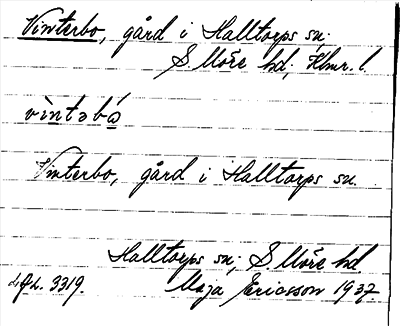 Vinterbo, gård i Halltorps sn.
S Möre hd, Klmr. l.
vìntəbó
Vinterbo, gård i Halltorps sn.
Halltorps sn, S Möre hd
3319. Maja Ericsson 1937.